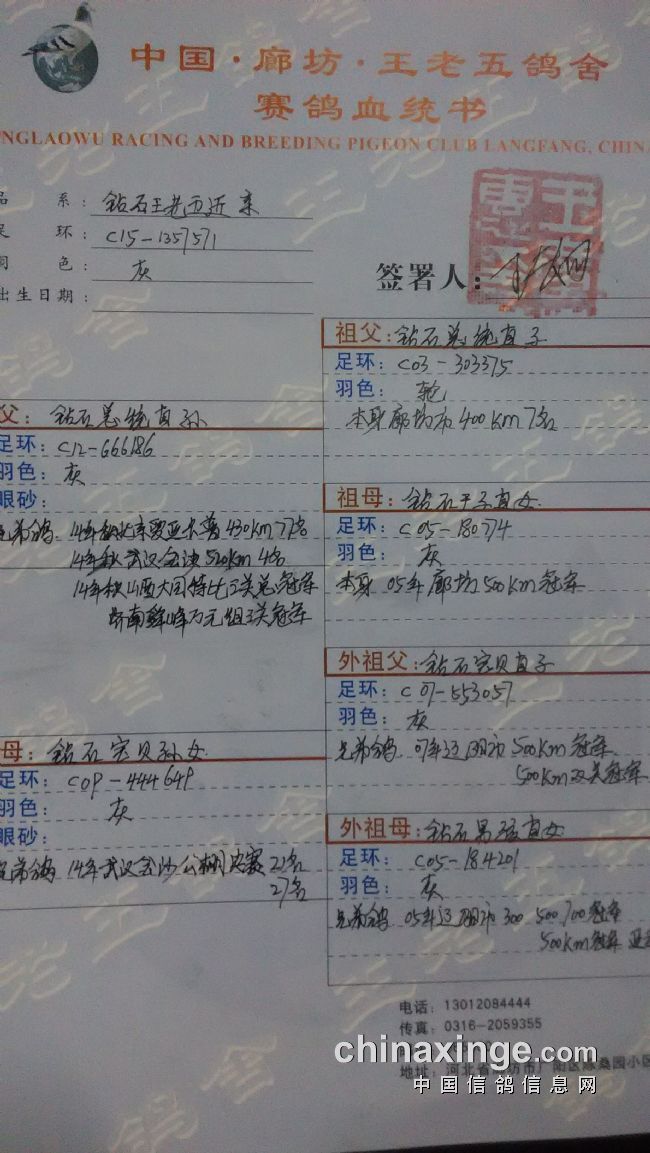 中国·廊坊·王老五鸽舍
赛鸽血统书
NGLAOWU RACING AND BREEDING PIGEON CLUB LANGFANG, CHINA
品 系：钻石王老五近亲
足 环：C15-1357571
色：灰
出生日期：
签署人：
祖父：钻石总统直子
足环：C03-303375
羽色：轮
本身廊坊市400km7名
父：钻石总统直孙
足环：C12-666186
羽色：灰
眼砂：
兄弟鸽 14年秋 430km 77名
14年秋武汉 520km 4名
14年秋山西大同 三关总冠军
济南 峰万元组三关冠军
祖母：钻石王子直女
足环：C05-180774
羽色：灰
本身05年廊坊500km冠军
外祖父：钻石宝贝直子
足环：C07-553057
羽色：灰
兄弟鸽 07年 市500km冠军
500km双关冠军
母：钻石宝贝孙女
足环：C09-444649
羽色：灰
眼砂：
兄弟鸽 14年武汉金沙公棚决赛 21名
27名
外祖母：钻石 直女
足环：C05-184201
羽色：灰
兄弟鸽 05年 市300 500 700冠军
500km冠军
电话：13012084444
传真：0316-2059355
地址：河北省廊坊市广阳区 桑园小区
chinaxinge.com
中国信鸽信息网